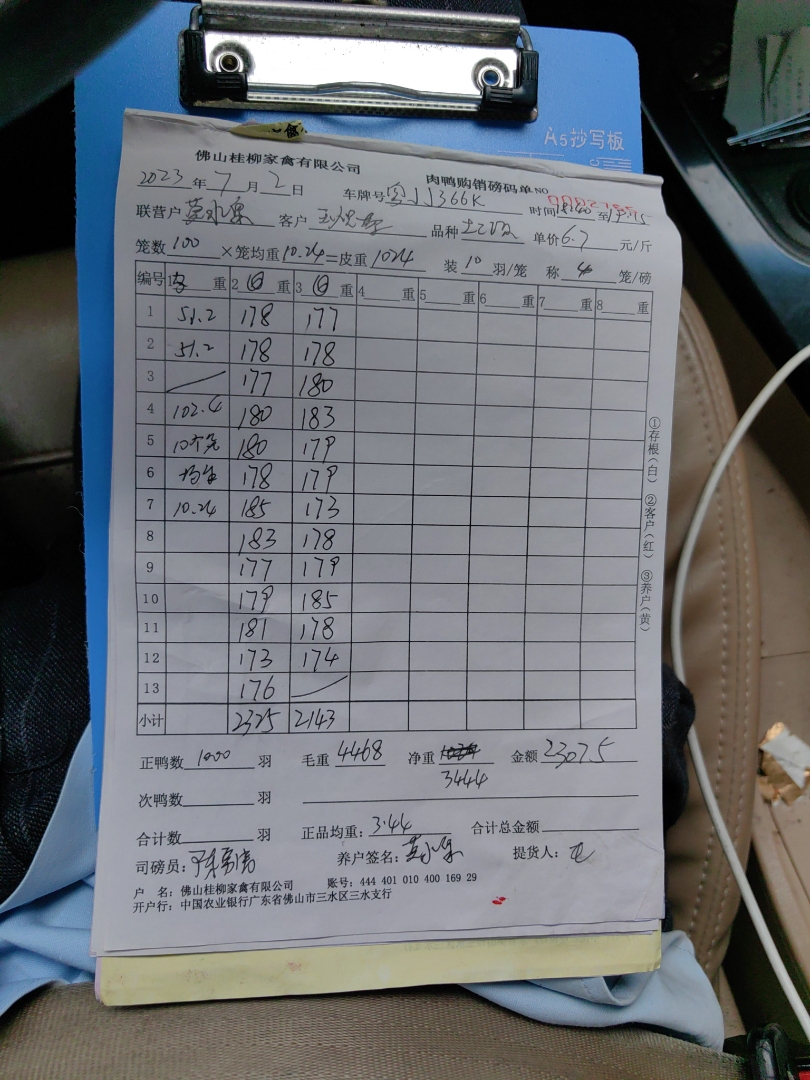 A5抄写板
佛山桂柳家禽有限公司 肉鸭购销磅码单 NO
2023 年 7 月 2 日 车牌号 J366K 时间 至
联营户 客户 品种 单价 6.7 元/斤
笼数 100 ×笼均重 10.24 =皮重 1024 装 10 羽/笼 称 4 笼/磅
编号 1 重 2 重 3 重 4 重 5 重 6 重 7 重 8 重
1 51.2 178 177
2 51.2 178 178
3 177 180
4 102.4 180 183
5 180 179
6 178 179
7 10.24 185 173
8 183 178
9 177 179
10 179 185
11 181 178
12 173 174
13 176
小计 2325 2143
正鸭数 1000 羽 毛重 4468 净重 3444 金额 23075
次鸭数 羽
合计数 羽 正品均重: 3.44 合计总金额
司磅员: 养户签名: 提货人:
户 名: 佛山桂柳家禽有限公司 账号: 444 401 010 400 169 29
开户行: 中国农业银行广东省佛山市三水区三水支行
①存根(白) ②客户(红) ③养户(黄)